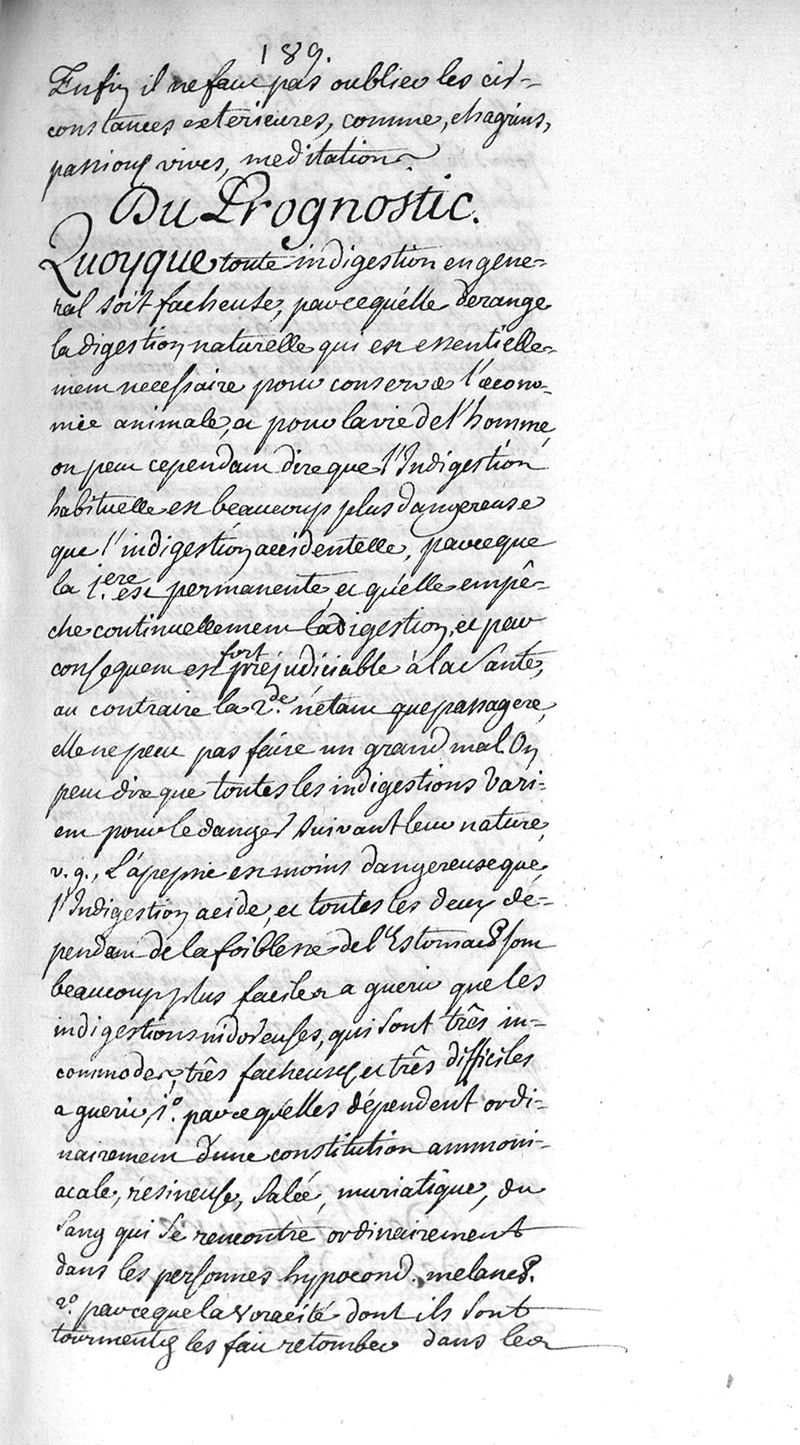 189.
Enfin il ne faut pas oublier les cir-
constances exterieures, comme, chagrins,
passions vives, meditation.
Du Prognostic.
Quoyque toute indigestion en gene-
ral soit facheuse, parcequ'elle derange
la digestion naturelle qui est essentielle-
ment necessaire pour conserver l'œcono-
mie animale, et pour la vie de l'homme,
on peut cependant dire que l'Indigestion
habituelle est beaucoup plus dangereuse
que l'indigestion accidentelle, parceque
la 1.ere est permanente, et qu'elle empê-
che continuellement la digestion, et par
consequent est fort prejudiciable à la santé,
au contraire la 2.de n'étant que passagere,
elle ne peut pas faire un grand mal. On
peut dire que toutes les indigestions vari-
ent pour le danger suivant leur nature,
v. g., L'apepsie est moins dangereuse que
l'Indigestion acide, et toutes les deux dé-
pendant de la foiblesse de l'Estomac sont
beaucoup plus faciles a guerir que les
indigestions nidoreuses, qui sont três in-
commodes, três facheuses et três difficiles
a guerir, 1.o parcequ'elles dépendent ordi-
nairement d'une constitution ammoni-
acale, résineuse, salée, muriatique, du
sang qui se rencontre ordinairement
dans les personnes hypocond. melanc.
2.o parceque la voracité dont ils sont
tourmentés les fait retomber dans les